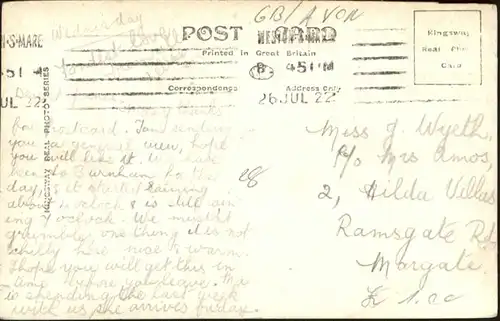 GB/AVON
Wednesday
POST CARD
Printed in Great Britain
Correspondence
Address Only
Kingsway
Real Photo
Card
N-S-MARE
5 1
JUL 22
B 4 5 PM
26 JUL 22
KINGSWAY REAL PHOTO SERIES
for postcard. I am sending
you a general view, hope
you will like it. We have
been to Burnham to-day,
& it started raining
about o'clock & is still rain-
ing 9 o'clock. We mustn't
grumble, one thing it is not
chilly here nice & warm.
I hope you will get this in
time before you leave.
is spending the last week
with us she arrives
28
Miss J. Wyeth,
c/o Mrs Amos,
2, Hilda Villas
Ramsgate Rd
Margate.
£ 1.00